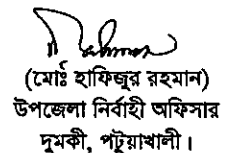 (মোঃ হাফিজুর রহমান)
উপজেলা নির্বাহী অফিসার
দুমকী, পটুয়াখালী।